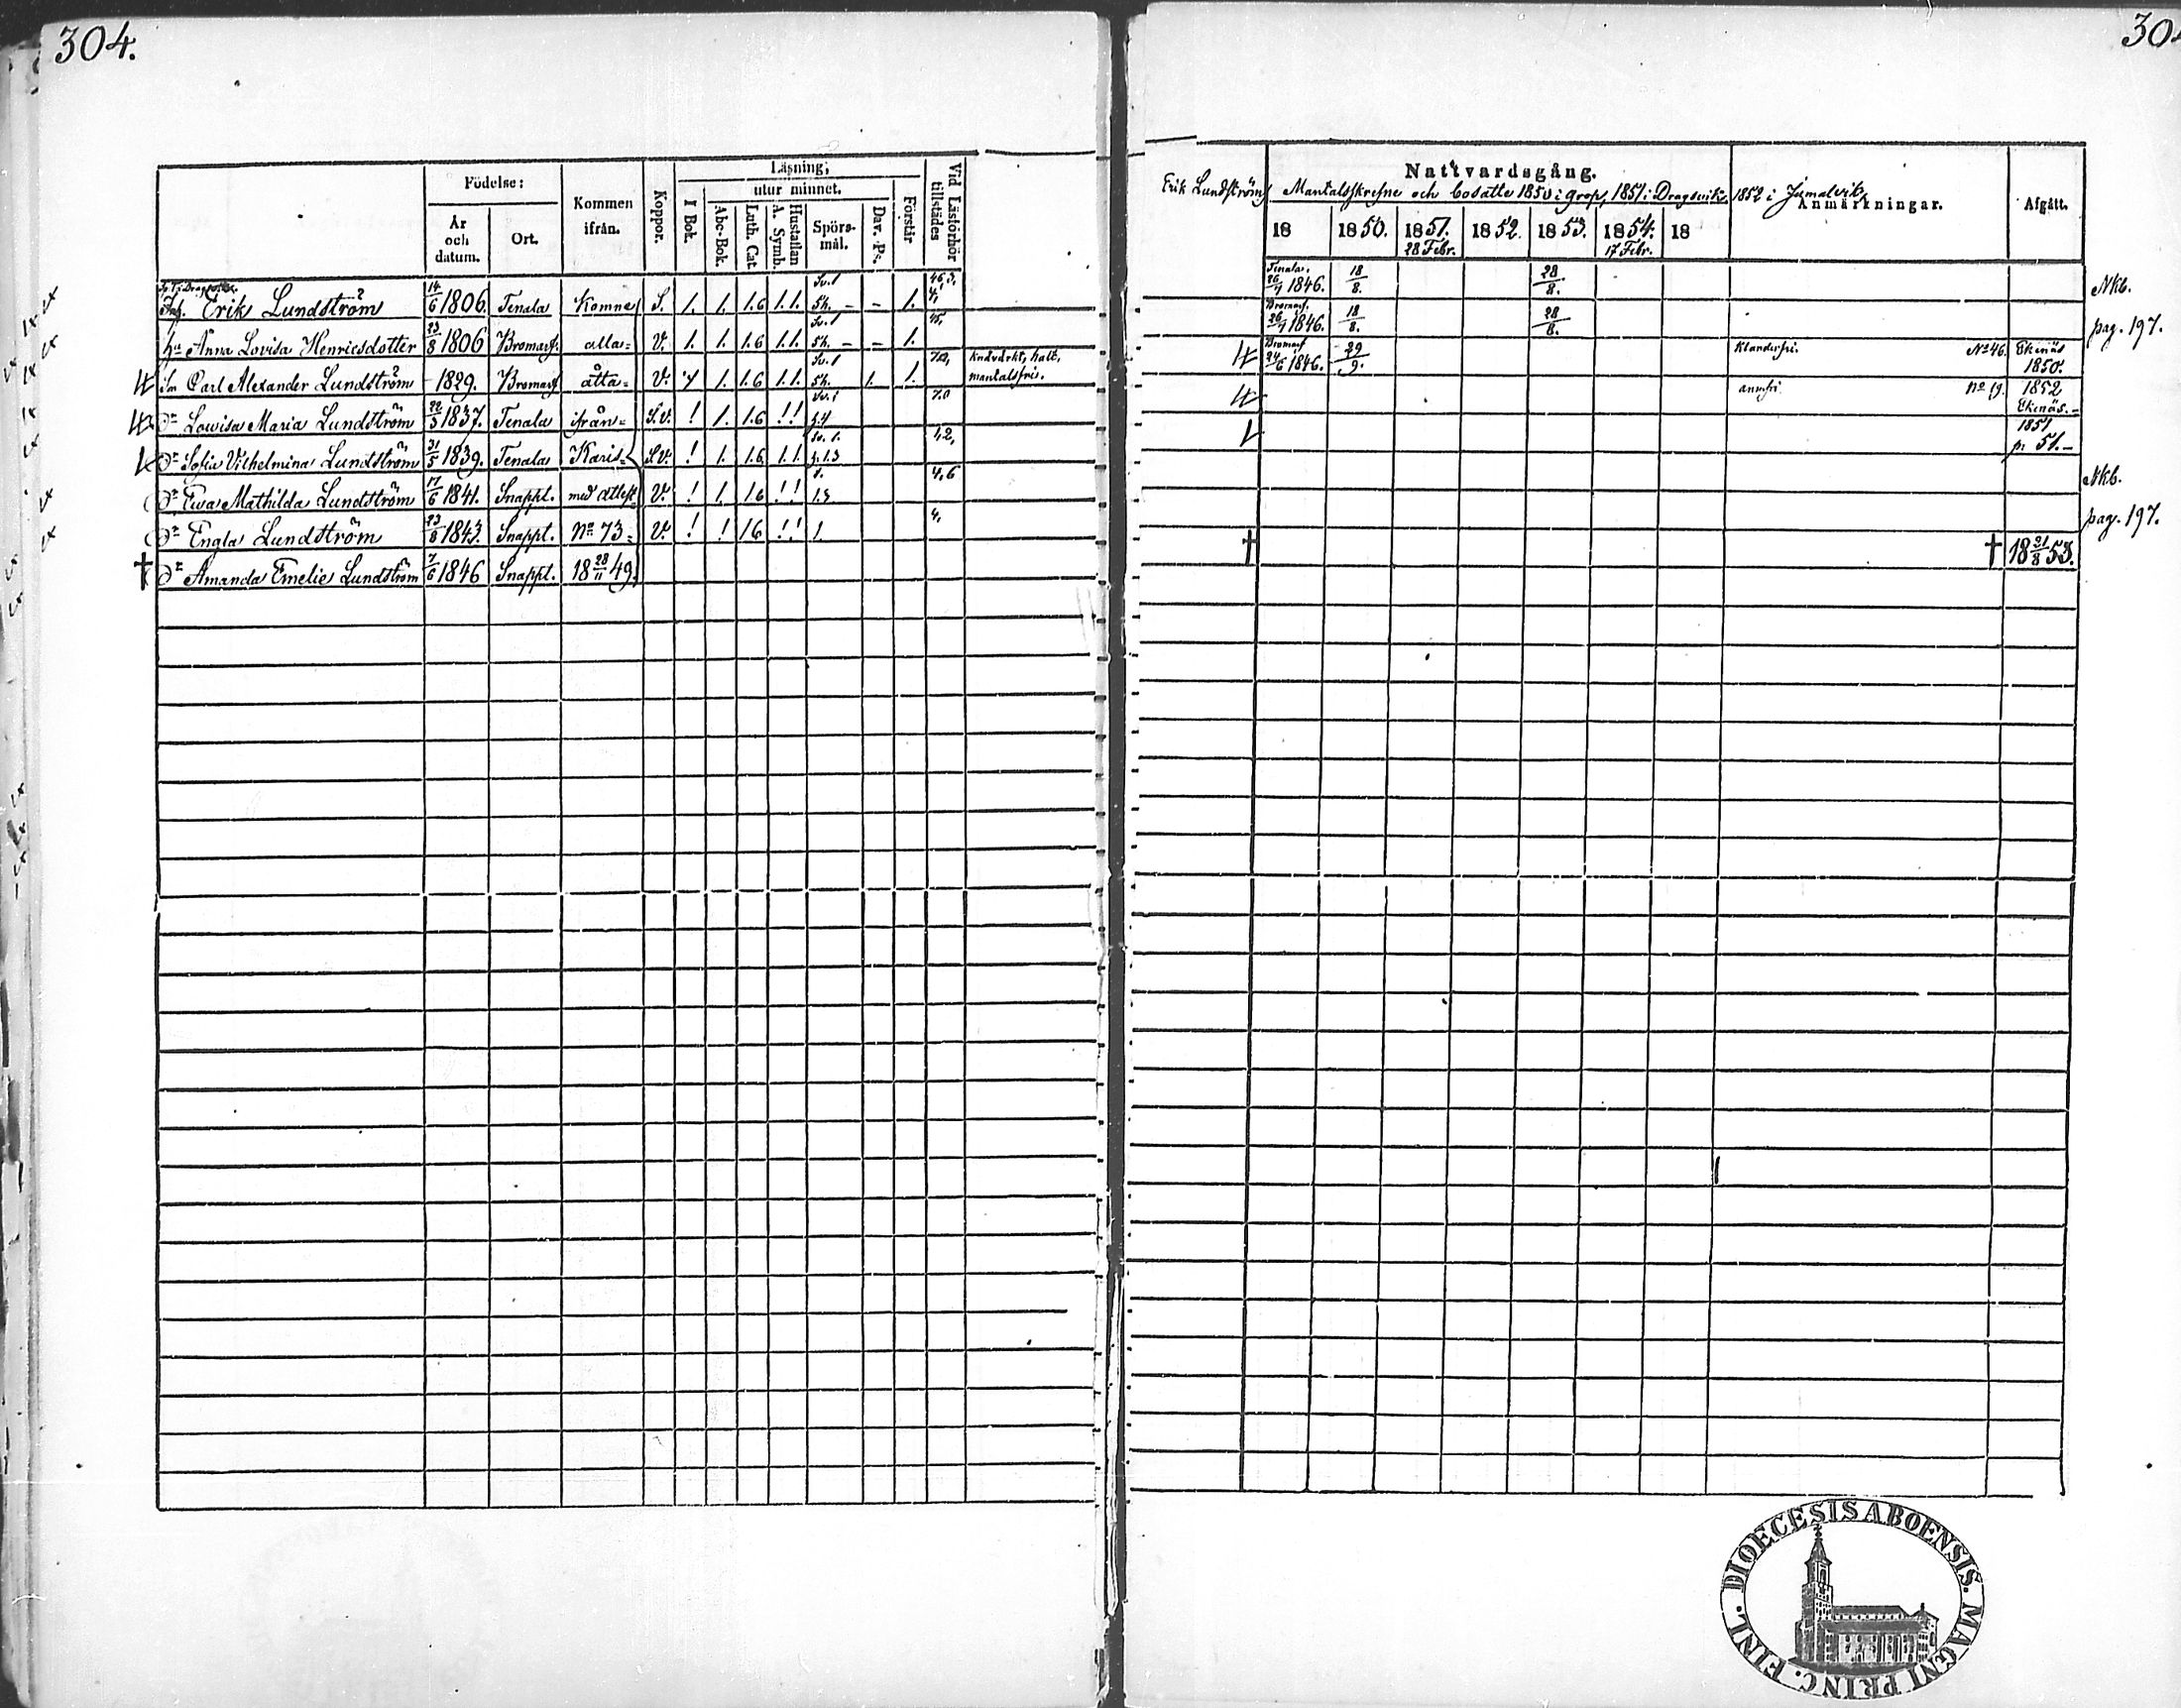 304.
Födelse:
År och datum.
Ort.
Kommen ifrån.
Koppor.
Läsning;
I Bok.
utur minnet.
Abc-Bok.
Luth. Cat.
Hustaflan A. Symb.
Spörsmål.
Dav. Ps.
Förstår
Vid Läsförhör tillstädes
Erik Lundström 14/6 1806. Tenala Komne S. 1. 1. 1.6 1.1. Sv.1 5h. – – 1.
hu Anna Lovisa Henricsdotter 23/8 1806 Bromarf. alla= V. 1. 1. 1.6 1.1. Sv.1 5h. – – 1.
Sm Carl Alexander Lundström 1829. Bromarf åtta= V. 1. 1.6 1.1. Sv.1 5h. 1. 1. knävärkt, halt, mantalsfris.
Dr Lowisa Maria Lundström 22/3 1837. Tenala ifrån= S.v. ! 1. 1.6 !!
Dr Sofia Vilhelmina Lundström 31/5 1839. Tenala Karis= S.v. ! 1. 1.6 1.1. Sv.1. 4,2,
Dr Ewa Mathilda Lundström 17/6 1841. Snappt. med attest V. ! 1. 1.6 !! 1.3 4,6
Dr Engla Lundström 23/8 1843. Snappt. No 73= V. ! ! 1 6 !! 1 4,
† Dr Amanda Emelie Lundström 7/6 1846 Snappt. 18 28/11 49.
304
Nattvardsgång.
Erik Lundström Mantalsskrefne och bosatte 1850 i Grop, 1851 i Dragsvik, 1852 i Jomalvik,
Anmärkningar.
Afgått.
18 1850. 1851. 1852. 1853. 1854. 18
28 Febr. 17 Febr.
Tenala. 26/7 1846. 18/8. 28/8. Nkb.
Bromarf. 26/7 1846. 18/8. 28/8. pag. 197.
Bromarf 24/6 1846. 29/9. Klanderfri. No 46. Ekenäs 1850.
No 19. 1852 Ekenäs.–
1851 p. 51.–
Nkb.
pag. 197.
† † 18 21/8 53.
DIOECESIS ABOENSIS. MAGNI PRINC. FINL.